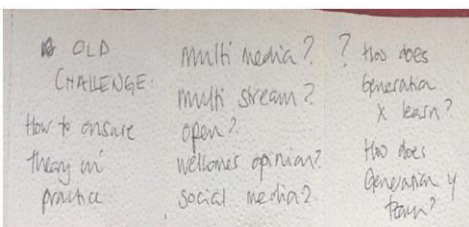 OLD
CHALLENGE.
How to ensure
theory in
practice
multi media?
multi stream?
open?
wellcomes opinion?
social media?
? How does
Generation
X learn?
How does
Generation y
learn?